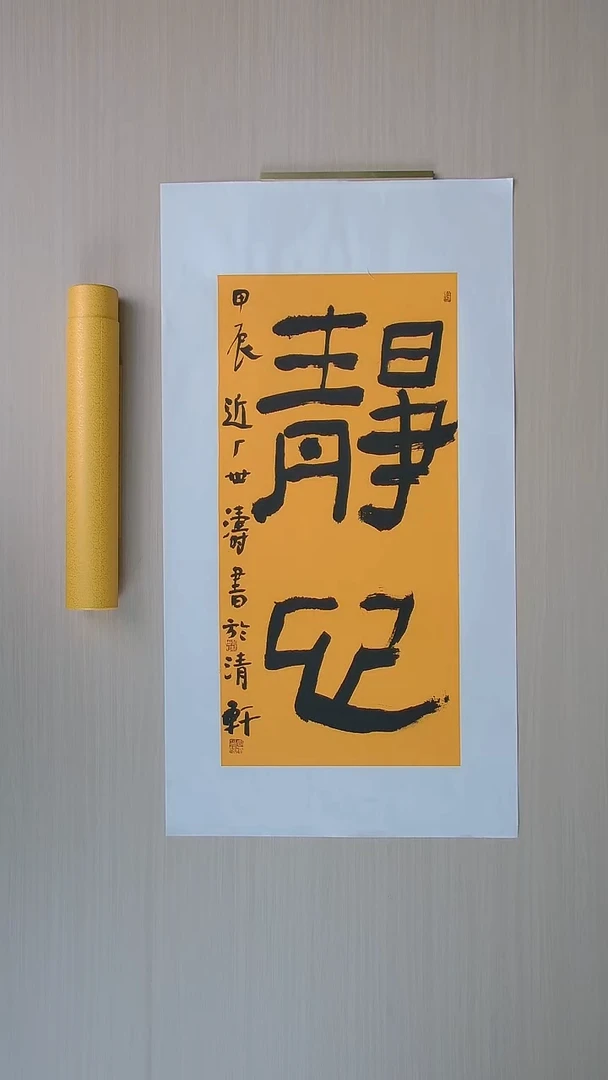 靜心
甲辰近厂世濤書於清軒